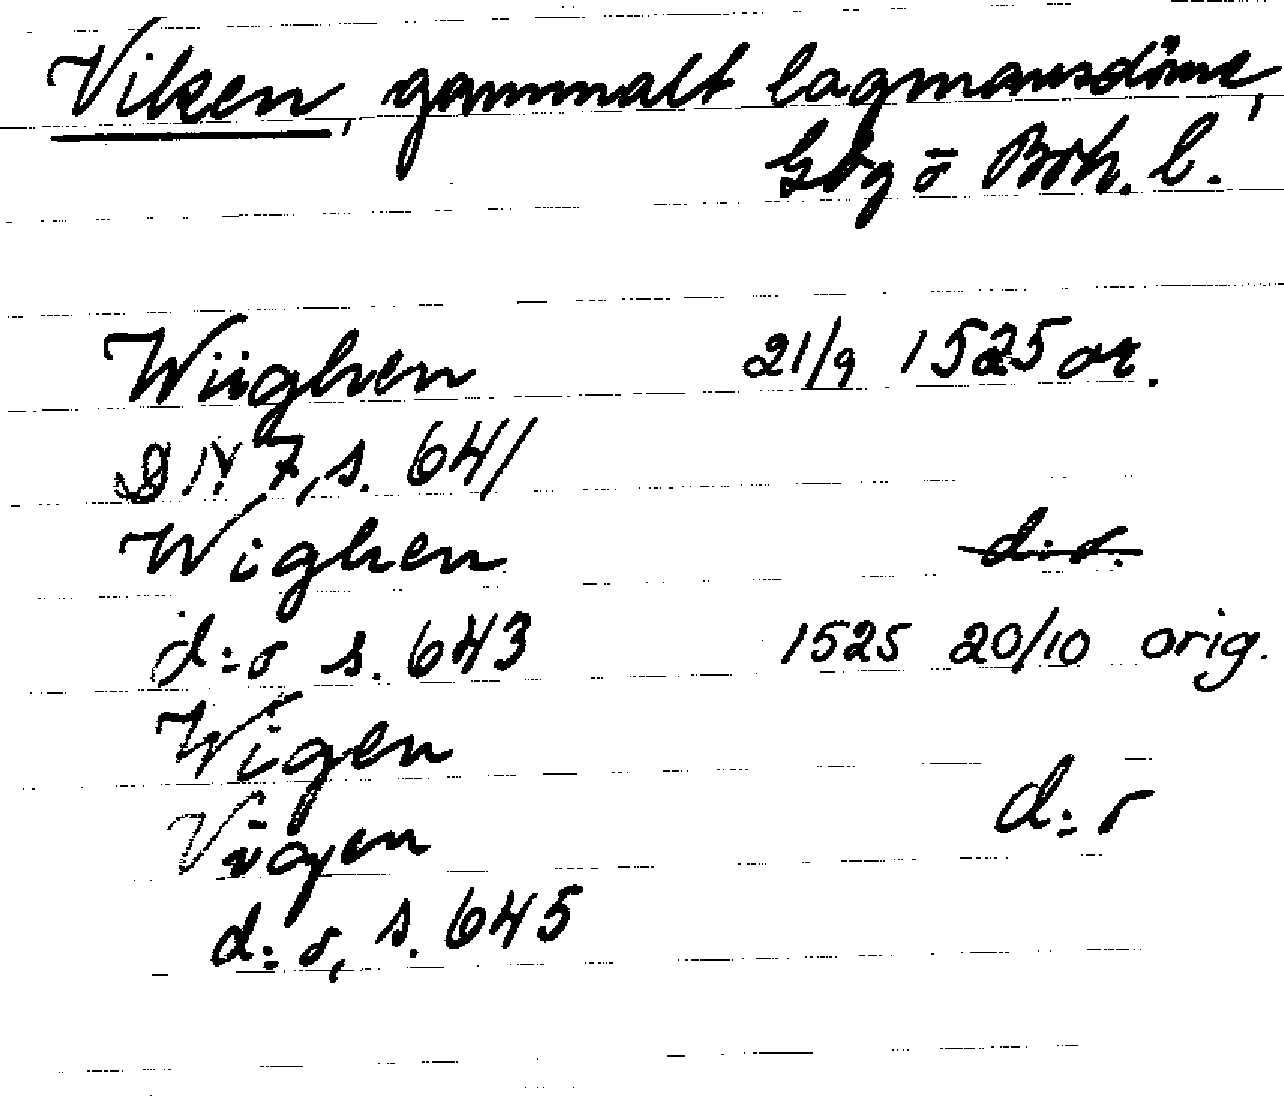 Viken, gammalt lagmansdöme,
Gbg o Boh. l.
Wiighen 21/9 1525 or.
DN 7, s. 641
Wighen d:o.
d:o s. 643 1525 20/10 orig.
Wigen
Viigen d:o
d:o, s. 645